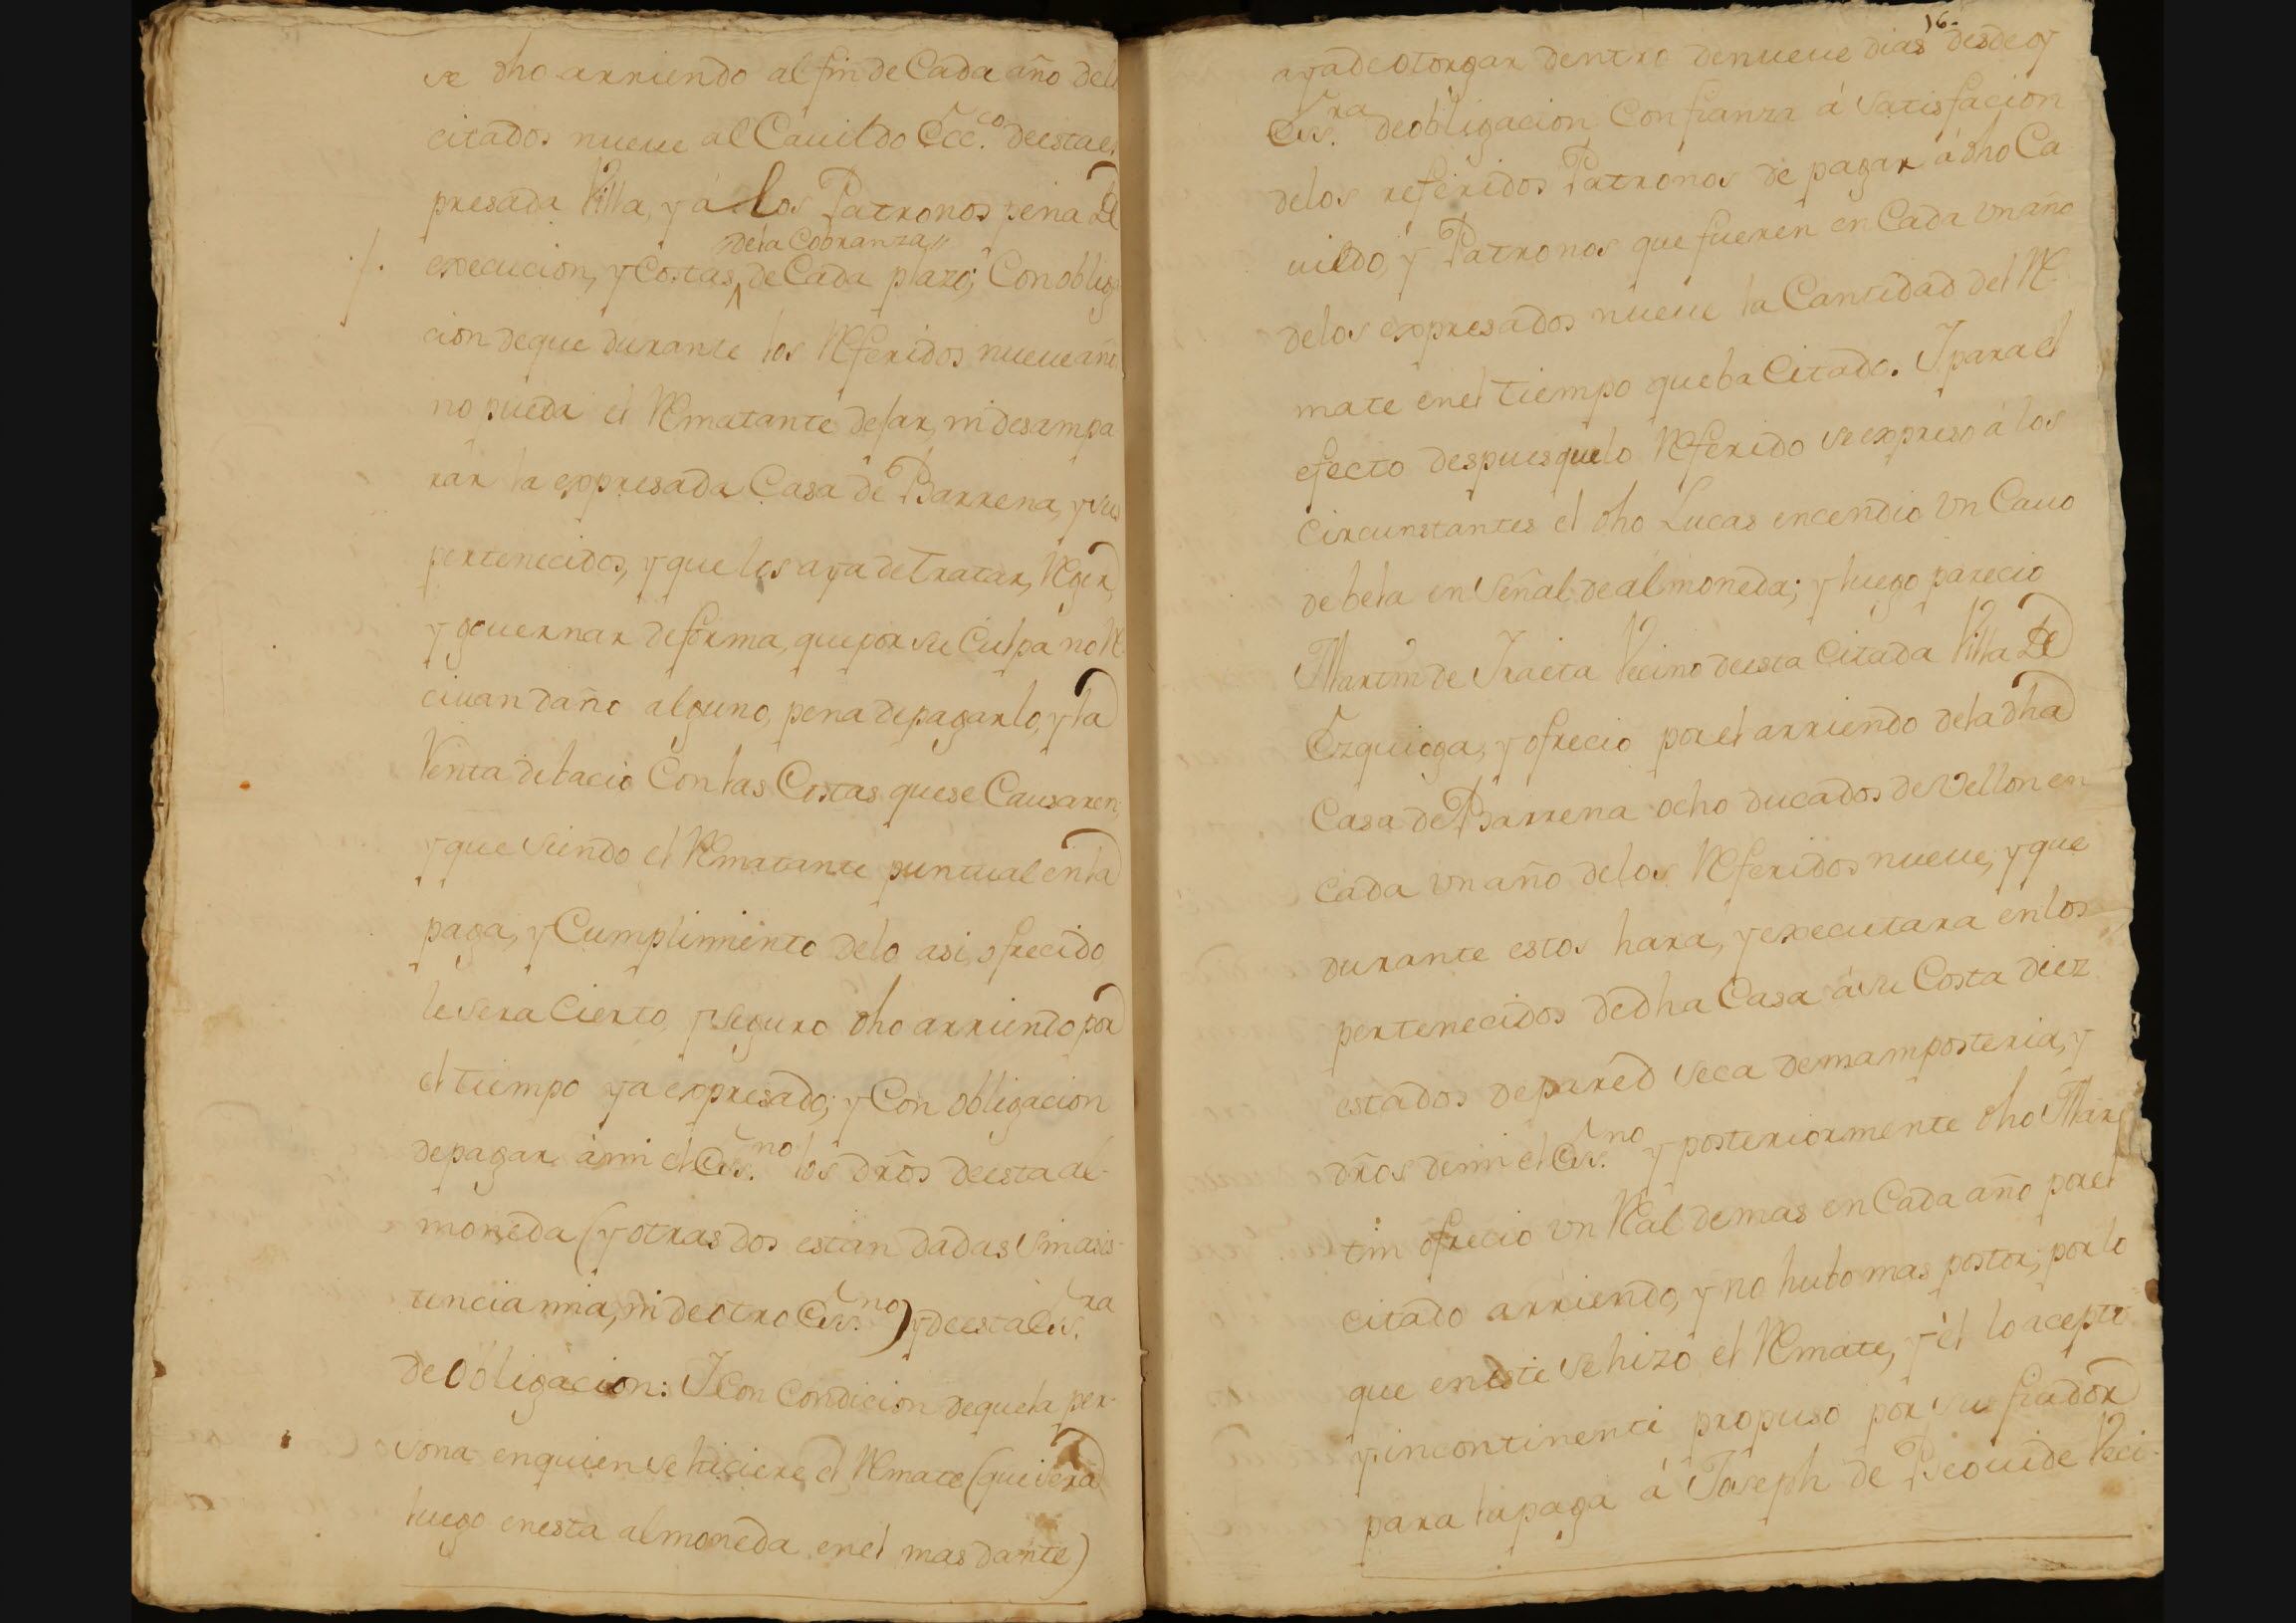 se dho arriendo al fin de Cada año del
citados nueue al Cauildo Ecc.co de esta ex
presada Villa, y a los Patronos pena de
dela Cobranza
execucion, y Costas, de Cada plazo; Con obliga
cion de que durante los Referidos nueue añ
no pueda el Rematante dejar, ni desampa
rar la expresada Casa de Barrena, y sus
pertenecidos, y que los aya de tratar, Regir,
y gouernar de forma, que por su Culpa no Re
ciuan daño alguno, pena de pagarlo, y la
Renta de bacio Con las Costas que se Causaren,
y que siendo el Rematante puntual en la
paga, y Cumplimiento delo asi ofrecido
le sera Cierto, y seguro dho arriendo por
el tiempo ya expresado; y Con obligacion
de pagar, a mi el Es.no los drôs de esta al-
moneda (y otras dos estan dadas sin asis-
tencia mia, ni de otro Es.no) y de esta Es.ra
de Obligacion: I Con Condicion de que la per-
sona en quien se hiciere el Remate (que sera
luego en esta almoneda en el mas dante)
16.
aya de otorgar dentro de nueue dias desde oy
Es.ra de obligacion Con fianza á satisfacion
delos referidos Patronos de pagar á dho Ca
uildo, y Patronos que fueren en Cada un año
delos expresados nueue la Cantidad del Re
mate en el tiempo que ba Citado. I para el
efecto despues que lo Referido se expreso á los
Circunstantes el dho Lucas encendio un Cauo
de bela en señal de almoneda; y luego parecio
Martin de Iraeta Vecino de esta Citada Villa de
Ezquioga, y ofrecio por el arriendo dela dha
Casa de Barrena ocho ducados de Vellon en
Cada un año delos Referidos nueue, y que
durante estos hara, y executara en los
pertenecidos de dha Casa á su Costa diez
estados de pared seca de mamposteria, y
drôs de mi el Es.no y posteriormente dho Mar
tin ofrecio un Real de mas en Cada año por el
citado arriendo, y no hubo mas postor, por lo
que en este se hizo el Remate, y él lo acepto
y incontinenti propuso por su fiador
para la paga á Joseph de Beouide Veci-